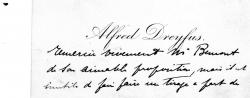 Alfred Dreyfus.
Remercie vivement Mr Bemont
de son aimable proposition, mais il est
inutile de faire faire un tirage à part de